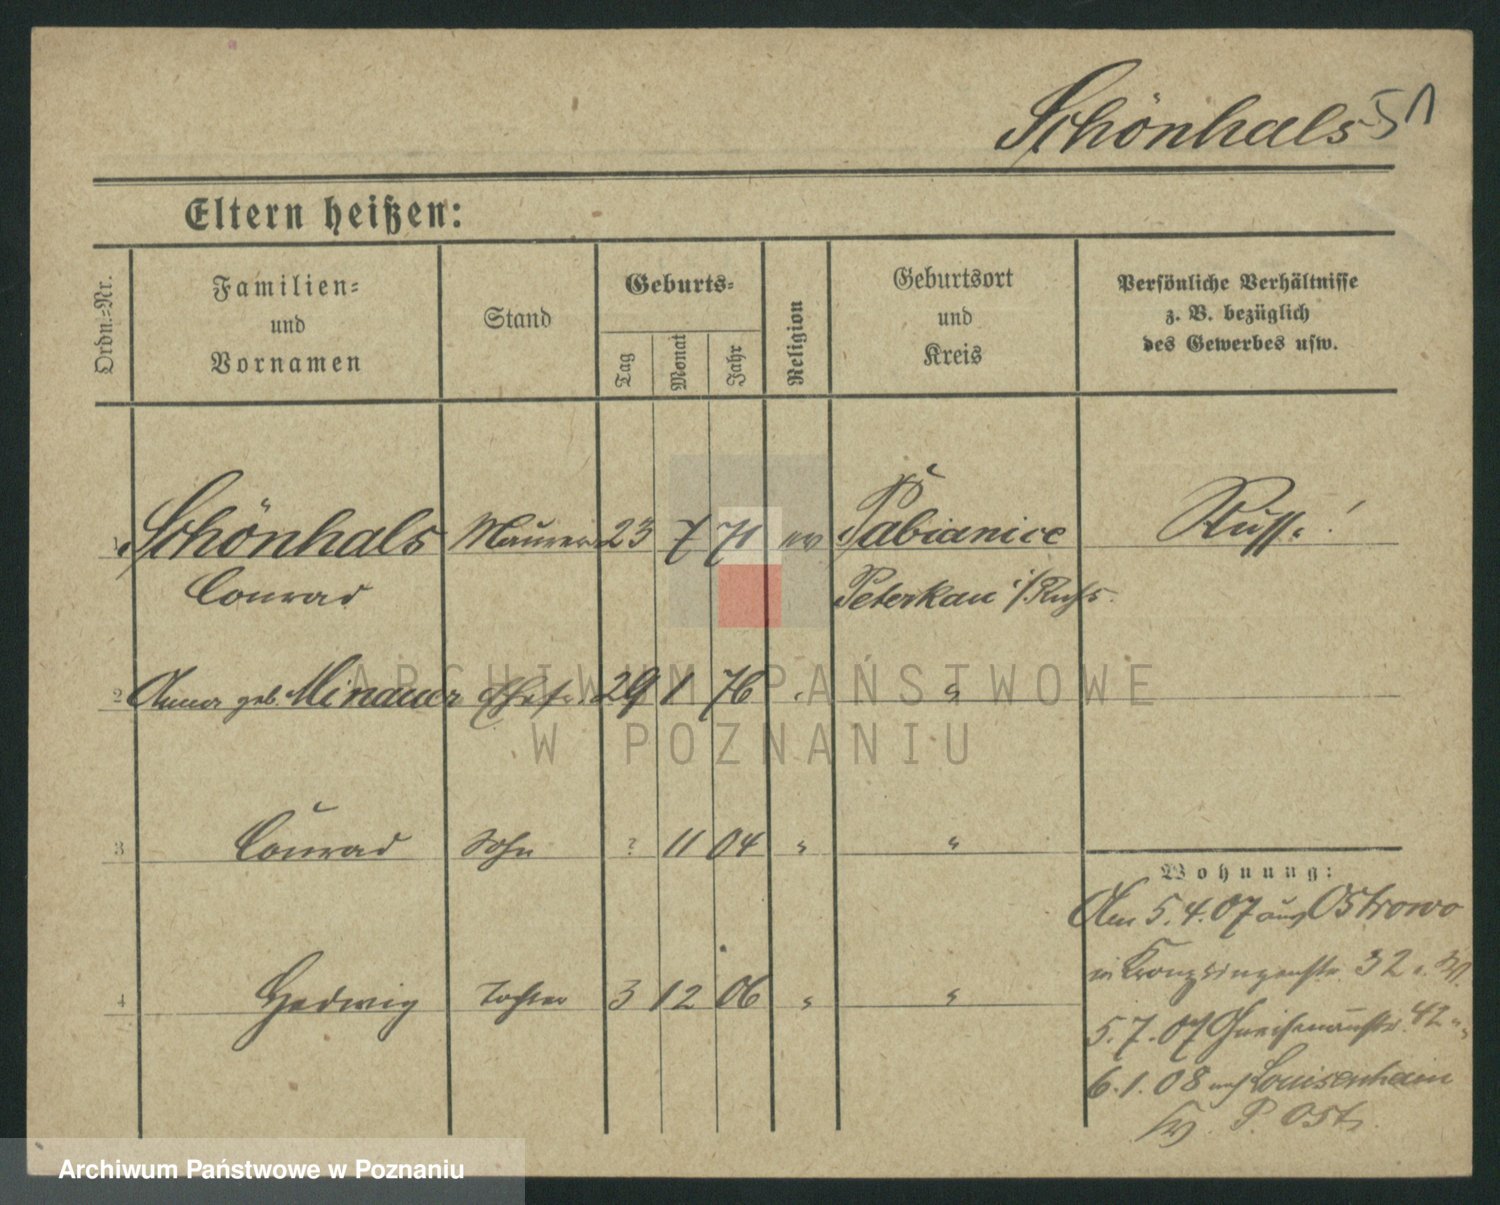 Schönhals 51
Eltern heißen:
Ordn.-Nr.
Familien-
und
Vornamen
Stand
Geburts-
Tag
Monat
Jahr
Religion
Geburtsort
und
Kreis
Persönliche Verhältnisse
z. B. bezüglich
des Gewerbes usw.
1 Schönhals Maurer 23 7 71 ev Pabianice Russe!
Conrad Peterkau i/Rußs.
2 Anna geb. Minauer Ehefr. 29 1 76 " "
ARCHIWUM PAŃSTWOWE
W POZNANIU
3 Conrad Sohn ? 11 04 " "
Wohnung:
Am 5.4.07 aus Ostrowo
in Kronprinzenstr. 32
4 Hedwig Tochter 3 12 06 " "
5.7.07 Gneisenaustr. 42
6.1.08 nach Louisenhain
P. Ost.
Archiwum Państwowe w Poznaniu